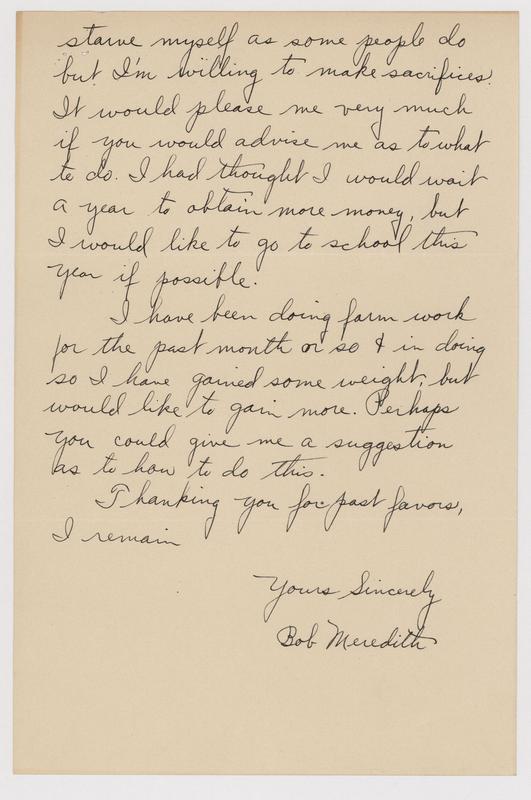 starve myself as some people do
but I'm willing to make sacrifices.
It would please me very much
if you would advise me as to what
to do. I had thought I would wait
a year to obtain more money, but
I would like to go to school this
year if possible.
I have been doing farm work
for the past month or so & in doing
so I have gained some weight, but
would like to gain more. Perhaps
you could give me a suggestion
as to how to do this.
Thanking you for past favors,
I remain
Yours Sincerely
Bob Meredith